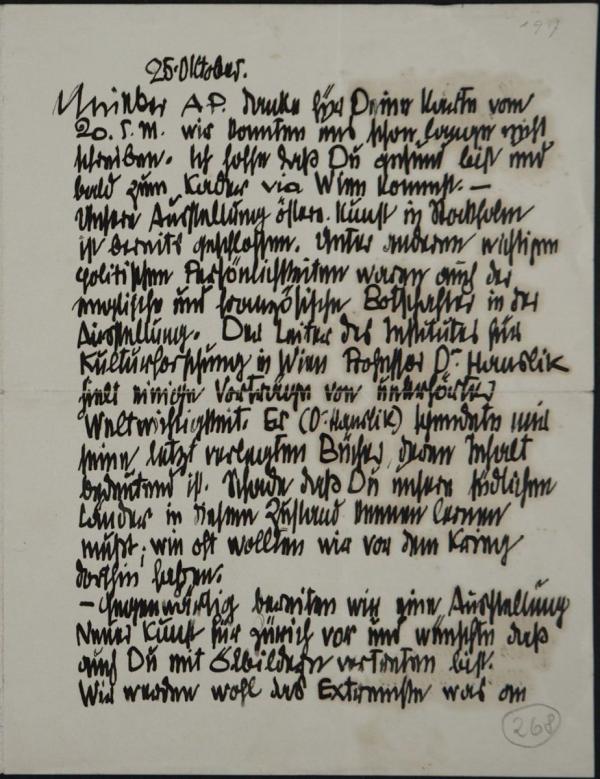 191
25. Oktober.
Mein lieber A.P. danke für Deine Karte vom
20. d. M. wir konnten uns schon lange nicht
schreiben. Ich hoffe daß Du gesund bist und
bald zum Kader via Wien kommst. —
Unsere Ausstellung österr. Kunst in Stockholm
ist bereits geschlossen. Unter anderen wichtigen
politischen Persönlichkeiten waren auch der
englische und französische Botschafter in der
Ausstellung. Der Leiter des Institutes für
Kulturforschung in Wien Professor Dr. Hanslik
hielt einige Vorträge von unerhörter
Weltwichtigkeit. Er (Dr. Hanslik) spendete mir
seine letzt verlegten Bücher, deren Inhalt
bedeutend ist. Schade daß Du unsere südlichen
Länder in diesem Zustand kennen lernen
mußt; wie oft wollten wir vor dem Krieg
dorthin fahren.
— Gegenwärtig bereiten wir eine Ausstellung
Neuer Kunst für Zürich vor und wünschte daß
auch Du mit Ölbildern vertreten bist.
Wir werden wohl das Extremste was an
268